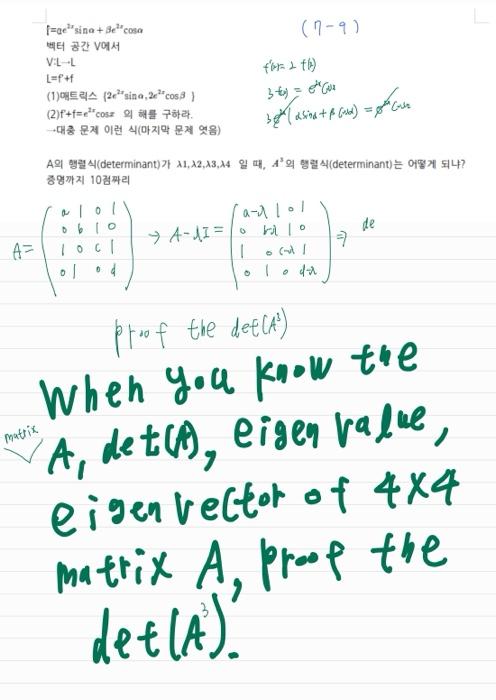 f=αe²ˣsinα + βe²ˣcosα
벡터 공간 V에서
V:L→L
L=f'+f
(1)매트릭스 {2e²ˣsinα,2e²ˣcosβ }
(2)f'+f=e²ˣcosx 의 해를 구하라.
→대충 문제 이런 식(마지막 문제 엿음)
(7-9)
f'(x)= 2 f(x)
3 f(x) = e²ˣ cosx
3e²ˣ(αsinα + β cosα) = e²ˣ cosx
A의 행렬식(determinant)가 λ1,λ2,λ3,λ4 일 때, A³의 행렬식(determinant)는 어떻게 되나?
증명까지 10점짜리
A= (a 1 0 1 → A-λI = (a-λ 1 0 1 ⇒ de
0 b 1 0 0 b-λ 1 0
1 0 c 1 1 0 c-λ 1
0 1 0 d) 0 1 0 d-λ)
proof the det(A³)
When you know the
matrix
A, det(A), eigen value,
eigen vector of 4x4
matrix A, proof the
det(A³).